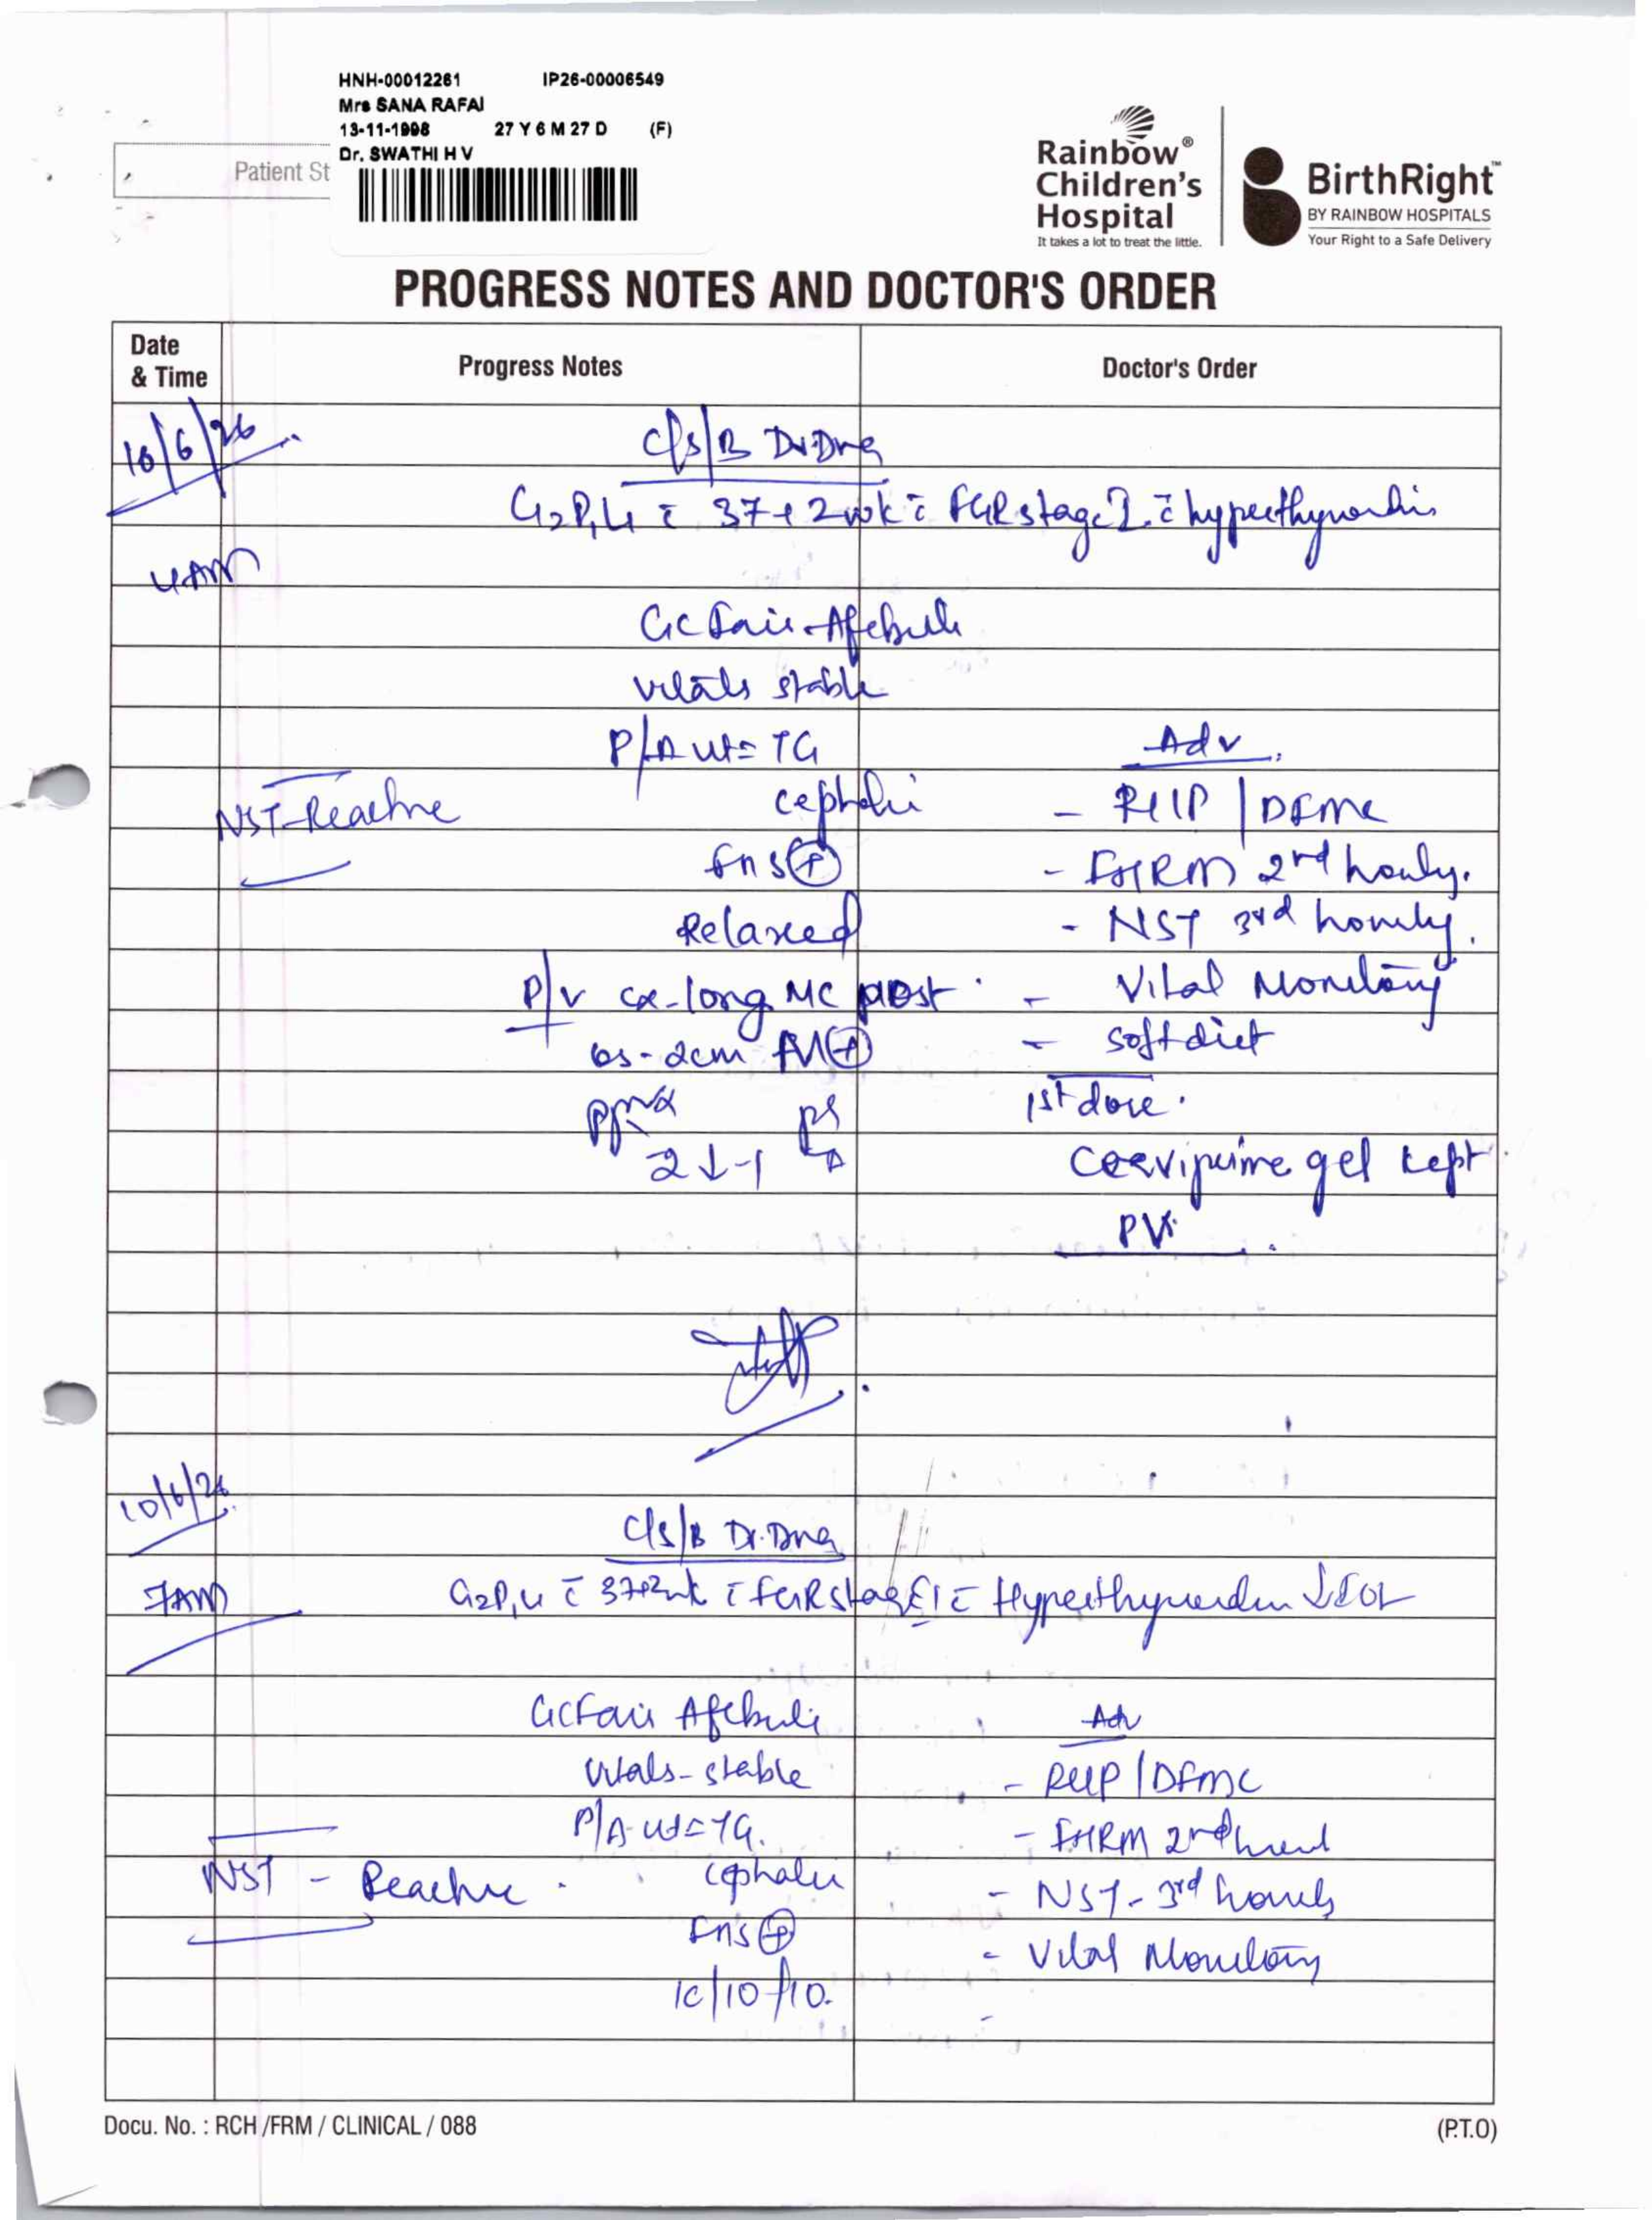 HNH-00012261 IP26-00006549
Mrs SANA RAFAI
13-11-1998 27 Y 6 M 27 D (F)
Dr. SWATHI H V
Patient St
Rainbow®
Children's
Hospital
It takes a lot to treat the little.
BirthRight™
BY RAINBOW HOSPITALS
Your Right to a Safe Delivery
PROGRESS NOTES AND DOCTOR'S ORDER
Date
& Time
Progress Notes
Doctor's Order
10/6/26
C/S/B Dr.
G2P1L1 c̄ 37+2wk c̄ FGR stage I c̄ hyperthyroidis
4AM
GC Fair. Afebrile
vitals stable
P/A ut= TG
Adv
NST-Reactive
cephalic
- RLLP / DFMC
FHS⊕
- FHRM 2nd hourly.
Relaxed
- NST 3rd hourly.
P/V cx-long MC post
- Vital Monitoring
os-2cm
- soft diet
1st dose.
2↓-1
Cerviprime gel kept
PV.
10/6/26
C/S/B Dr.
7AM
G2P1L1 c̄ 37+2wk c̄ FGR stage I c̄ Hyperthyroidism IOL
GC Fair Afebrile
Adv
Vitals- stable
- RLLP / DFMC
P/A-ut=TG.
- FHRM 2nd
NST - Reactive.
cephalic
- NST- 3rd hourly
FHS⊕
- Vital Monitoring
1c/10/10.
-
Docu. No. : RCH /FRM / CLINICAL / 088
(P.T.O)